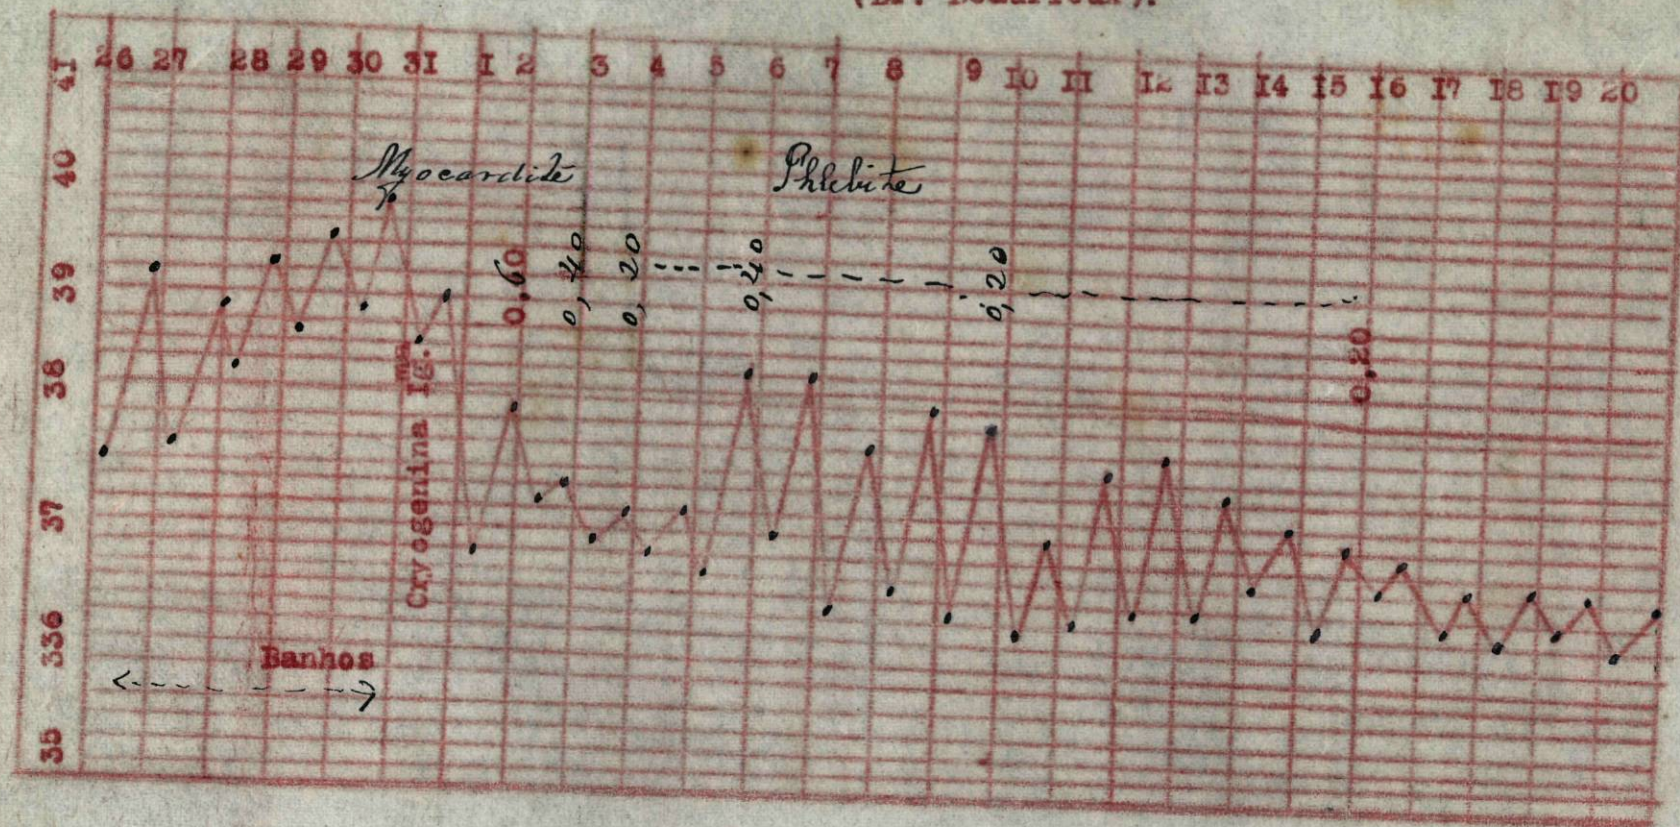 26 27 28 29 30 31 1 2 3 4 5 6 7 8 9 10 11 12 13 14 15 16 17 18 19 20
41
40
39
38
37
336
35
Myocardite
Phlebite
0,60
0,40
0,20
0,40
0,20
0,20
Oxyogenina Ig.ma
Banhos